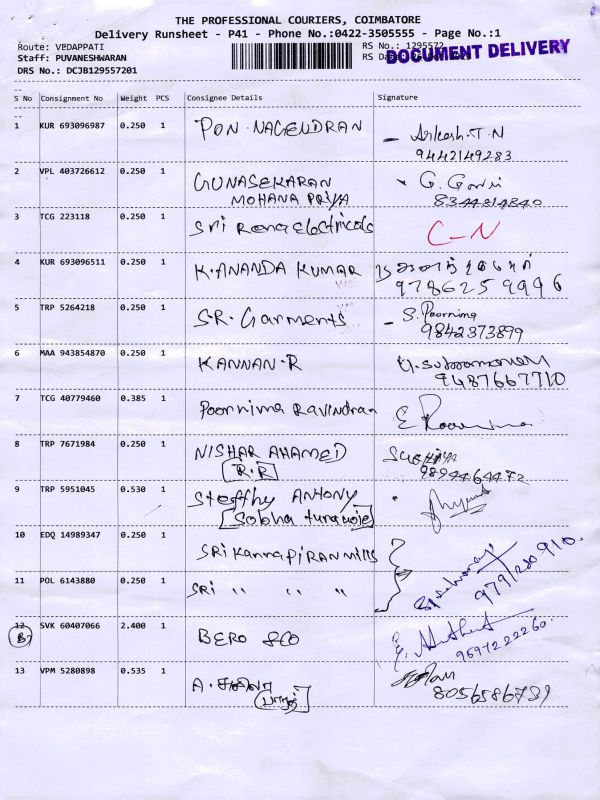 THE PROFESSIONAL COURIERS, COIMBATORE
Delivery Runsheet - P41 - Phone No.:0422-3505555 - Page No.:1
Route: VEDAPPATI
RS No.: 1295572
DOCUMENT DELIVERY
Staff: PUVANESHWARAN
RS
DRS No.: DCJB129557201
S No Consignment No Weight PCS Consignee Details Signature
1 KUR 693096987 0.250 1 PON. NAGENDRAN
T.N
9442149283
2 VPL 403726612 0.250 1 GUNASEKARAN
MOHANA PRIYA
G. Gowri
8344814840
3 TCG 223118 0.250 1 Sri Rana Electricals C-N
4 KUR 693096511 0.250 1 K.ANANDA KUMAR
9786259996
5 TRP 5264218 0.250 1 S.R. Garments S. Poornima
9842373899
6 MAA 943854870 0.250 1 KANNAN.R
9487667710
7 TCG 40779460 0.385 1 Poornima Ravindran
8 TRP 7671984 0.250 1 NISHAR AHAMED
R.R
9894464472
9 TRP 5951045 0.530 1 Steffhy ANTONY
Sobha turquoie
10 EDQ 14989347 0.250 1 SRI Kannapiran mills
11 POL 6143880 0.250 1 SRI " " "
9791280910
12 SVK 60407066 2.400 1 BERO &CO
9597222260
13 VPM 5280898 0.535 1 A.
8056586789